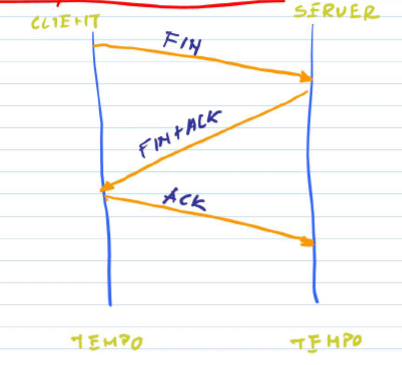 CLIENT SERVER
FIN
FIN+ACK
ACK
TEMPO TEMPO